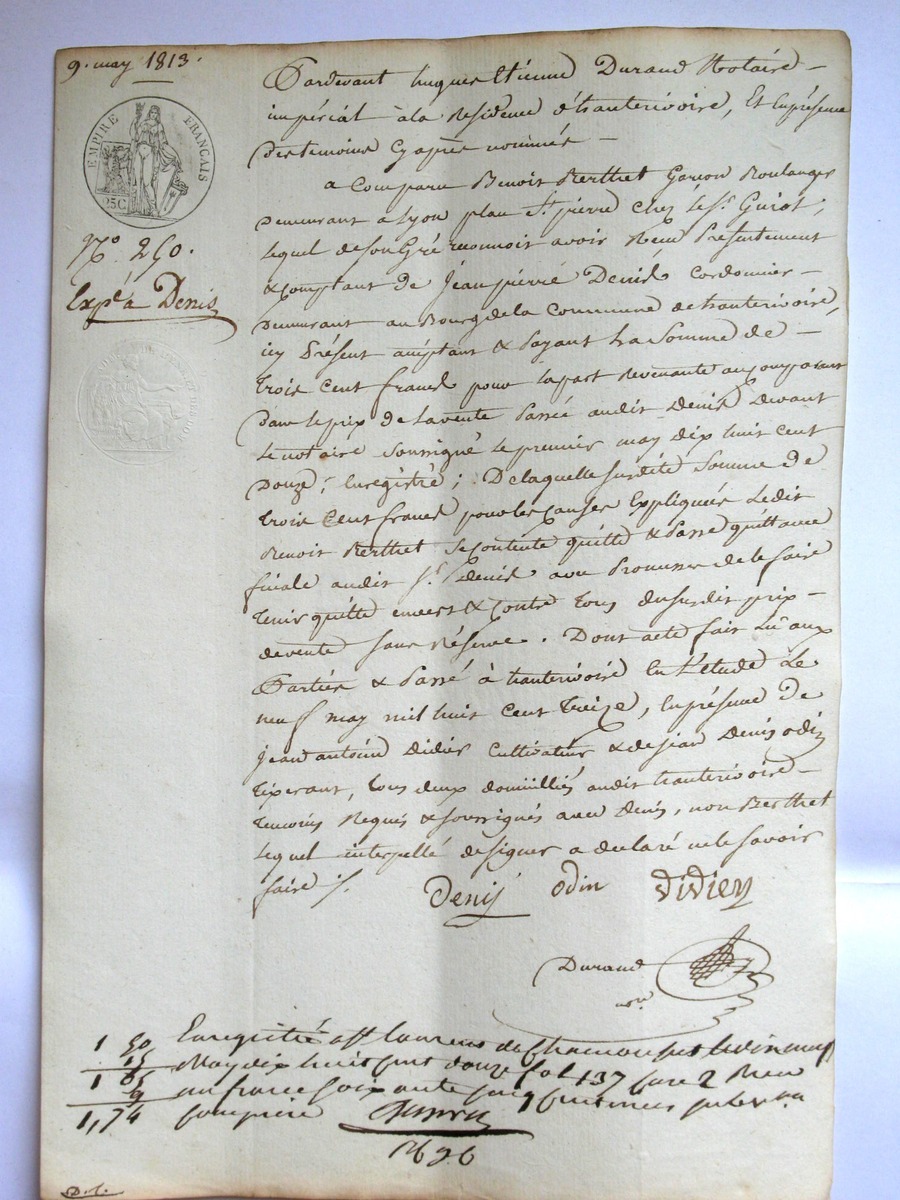 9. may 1813.
EMPIRE FRANÇAIS
25C
N.º 250.
Exp.é à Denis
Pardevant hugues Etienne Durand Notaire
impérial à la Residence d'hauterivoire, Et En présence
Des temoins Cyaprès nommés
a Comparu Benoit Berthet Garcon Boulanger
Demeurant a Lyon place St. pierre Chez le Sr. Guiot,
lequel de son Gré reconnoit avoir Recu Présentement
& comptant de Jean pierre Denis Cordonnier
Demeurant au Bourg de la Commune de hauterivoire,
icy Présent acceptant & Payant La Somme de
trois Cent francs pour la part Revenante au Comparant
Dans le prix de La vente Passée audit Denis Devant
Le notaire Soussigné Le premier may Dix huit Cent
Douze, Enregistré; De laquelle Susdite Somme de
trois Cent francs pour les Causes Expliquées Ledit
Benoit Berthet Se Contente quitte & Passe quittance
finale audit Sr. Denis avec Promesse de le faire
tenir quitte envers & Contre tous du Susdit prix
de vente Sans Réserve. Dont acte fait Lu aux
Parties & Passé à hauterivoire En L'étude Le
neuf may mil huit Cent treize, En présence De
Jean antoine Didier Cultivateur & de jean Denis odin
tixerant, tous deux domiciliés audit hauterivoire
temoins Requis & Soussignés avec Denis, non Berthet
Lequel interpellé de Signer a déclaré ne le Savoir
faire ./.
Denis odin Didier
Durand
nore
1 50 Enregistré a St Laurens de Chamousset le dix may
15 May dix huit cent douze fol 137 Case 2 Recu
1 65 un franc soixante cinq centimes
9 compris
1,74